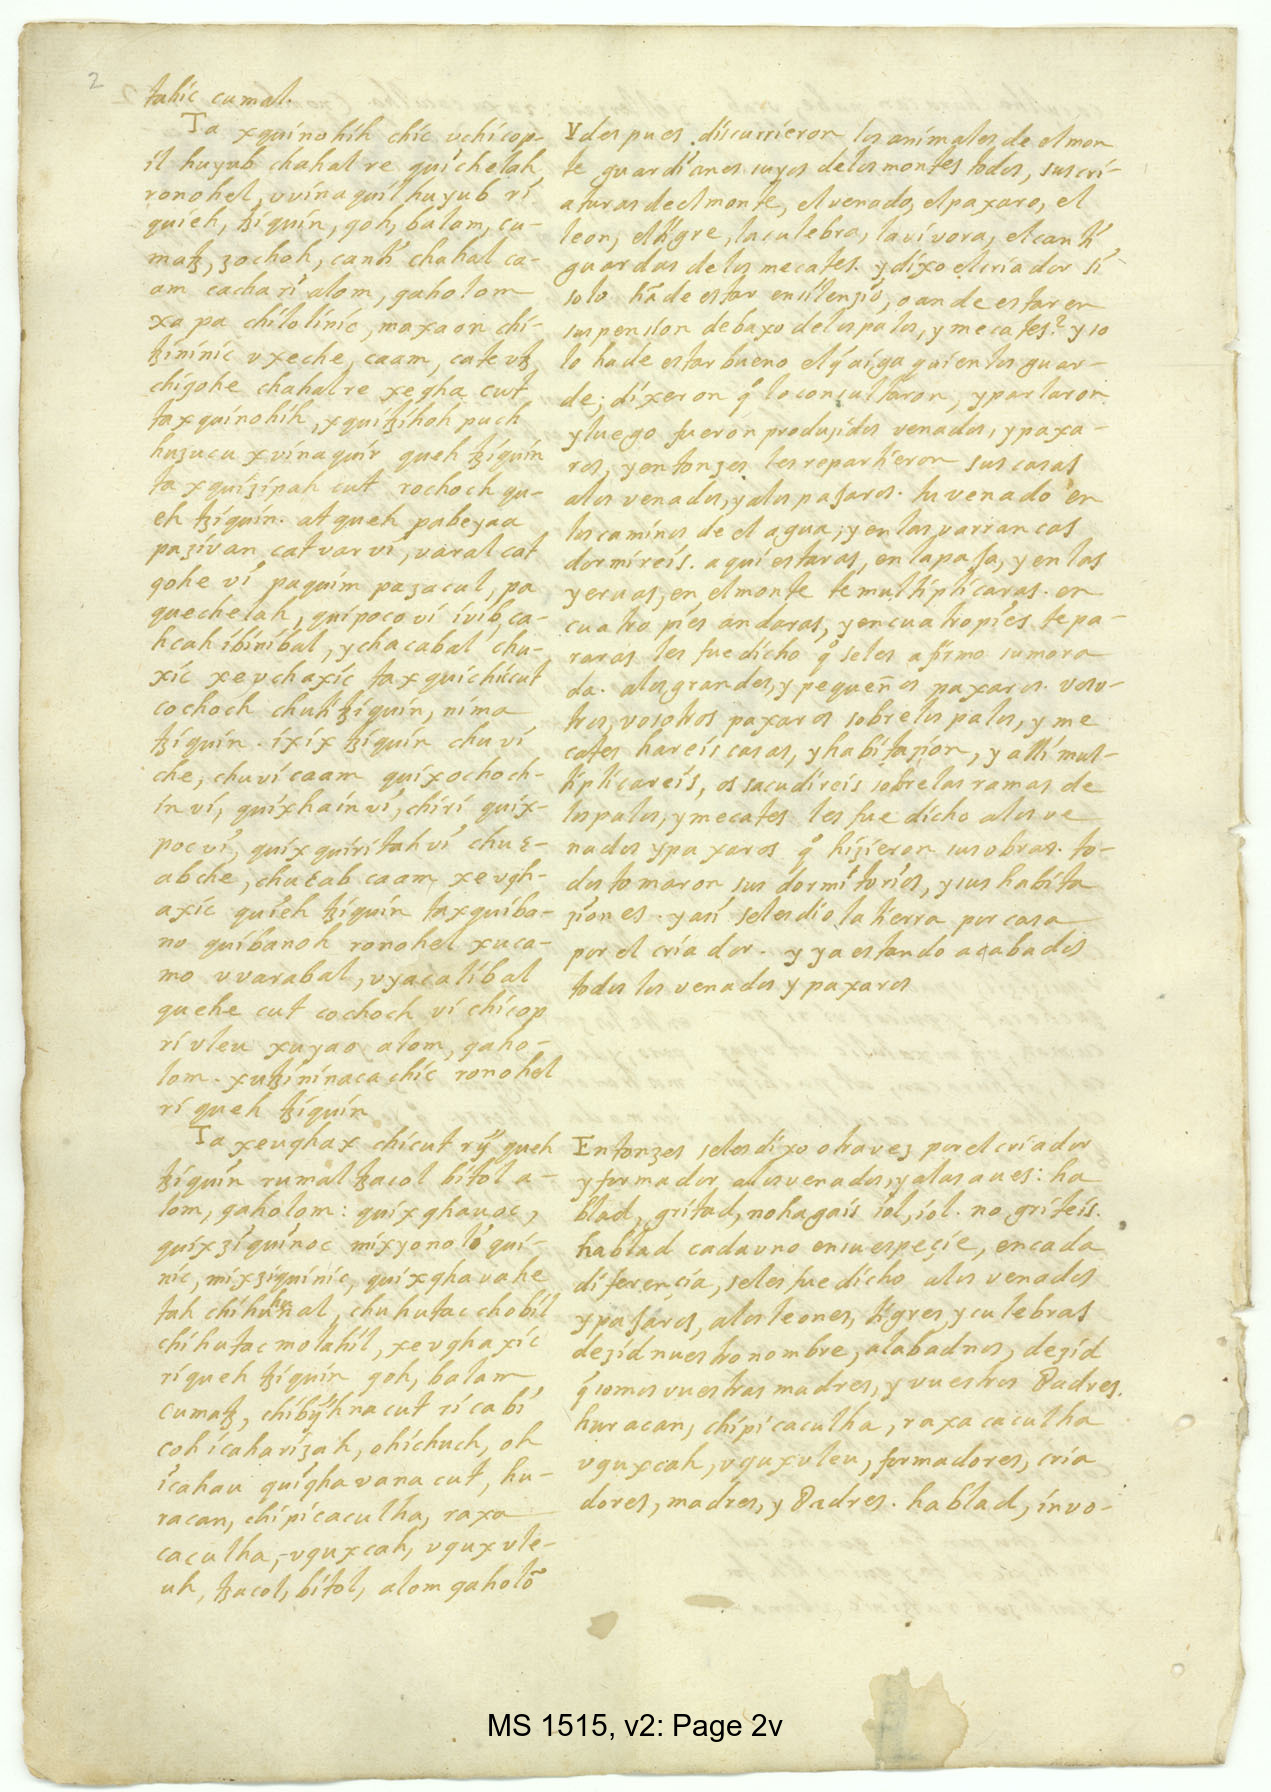 2
tahic cumal.
Ta xquinohih chic uchicop-
il huyub chahal re quichelah
ronohel, uvinaquil huyub ri
quieh, tziquin, qoh, balam, cu-
matz, zochoh, canti chahal ca-
am cacha ri alom, qaholom
xa pa chilolinic, maxaon chi-
tzininic uxeche, caam, cate utz
chigohe chahal re xegha cut
ta xquinohih, xquitzihoh puch
huzucu xvinaquir queh tziquin
ta xquizipah cut rochoch qu-
eh tziquin. at queh pabeyaa
pazivan cat var vi, varal cat
gohe vi paquim pazacul, pa
quechelah, quipoco vi ivib, ca-
hcah ibinibal, ychacabal chu-
xic xeuchaxic ta xquichiicut
cochoch chuti tziquin, nima
tziquin. ixix tziquin chuvi
che, chuvi caam quixochoch-
in vi, quixhain vi, chiri quix-
poc vi, quixquiritah vi chuε-
abche, chuεab caam xeugh-
axic quieh tziquin taxquiba-
no quibanoh ronohel xuca-
mo uvarabal, uyacalibal
quehe cut cochoch vi chicop
ri uleu xuyao alom, qaho-
lom. xutzininaca chic ronohel
ri queh tziquin
Ta xeughax chicut rÿ queh
tziquin rumal tzacol bitol a-
lom, qaholom: quixghauoc,
quixziquinoc mixyonolo qui-
nic, mixziquinic, quixghavahe
tah chihununal, chuhutac chobil
chihutac molahil, xeughaxic
ri queh tziquin goh, balam
cumatz, chibÿh na cut ri cabi
coh icaharizah, oh ichuch, oh
icahau quighavana cut, hu-
racan, chipicaculha, raxa
caculha, uquxcah, uquxule-
uh, tzacol, bitol, alom qaholõ
Y despues discurrieron los animales de el mon
te guardianes suyos de los montes todos, sus cri-
aturas de el monte, el venado, el paxaro, el
leon, el tigre, la culebra, la vivora, el canti
guardas de los mecates. y dixo el criador si
solo hã de estar en silenzio, o an de estar en
suspension debaxo de los palos, y mecates? y so
lo ha de estar bueno el q̃ aiga quien los guar-
de; dixeron qº lo consultaron, y parlaron
y luego fueron produjidos venados, y paxa-
ros, y entonzes les repartieron sus casas
a los venados, y a los pajaros. tu venado en
los caminos de el agua, y en las varrancas
dormireis. aqui estaras, en la paja, y en las
yeruas, en el monte te multiplicaras. en
cuatro pies andaras, y en cuatro pies te pa-
raras les fue dicho qº se les afirmo su mora
da. a los grandes, y pequeños paxaros. voso-
tros, vosotros paxaros sobre los palos, y me
cates hareis casas, y habitazion, y alli mul-
tiplicareis, os sacudireis sobre las ramas de
los palos, y mecates les fue dicho a los ve
nados y paxaros qº hizieron sus obras. to-
dos tomaron sus dormitorios, y sus habita
ziones. y asi se les dio la tierra por casa
por el criador. y ya estando acabados
todos los venados y paxaros
Entonzes se les dixo otra vez por el criador
y formador a los venados, y a las aues: ha
blad, gritad, no hagais iol, iol. no griteis.
hablad cada uno en su espeçie, en cada
diferençia, se les fue dicho a los venados
y pajaros, a los leones, tigres, y culebras
dezid nuestro nombre, alabadnos, dezid
q̃ somos vuestras madres, y vuestros Padres.
huracan, chipicaculha, raxa caculha
uquxcah, uquxuleu, formadores, cria
dores, madres, y Padres. hablad, invo-
MS 1515, v2: Page 2v